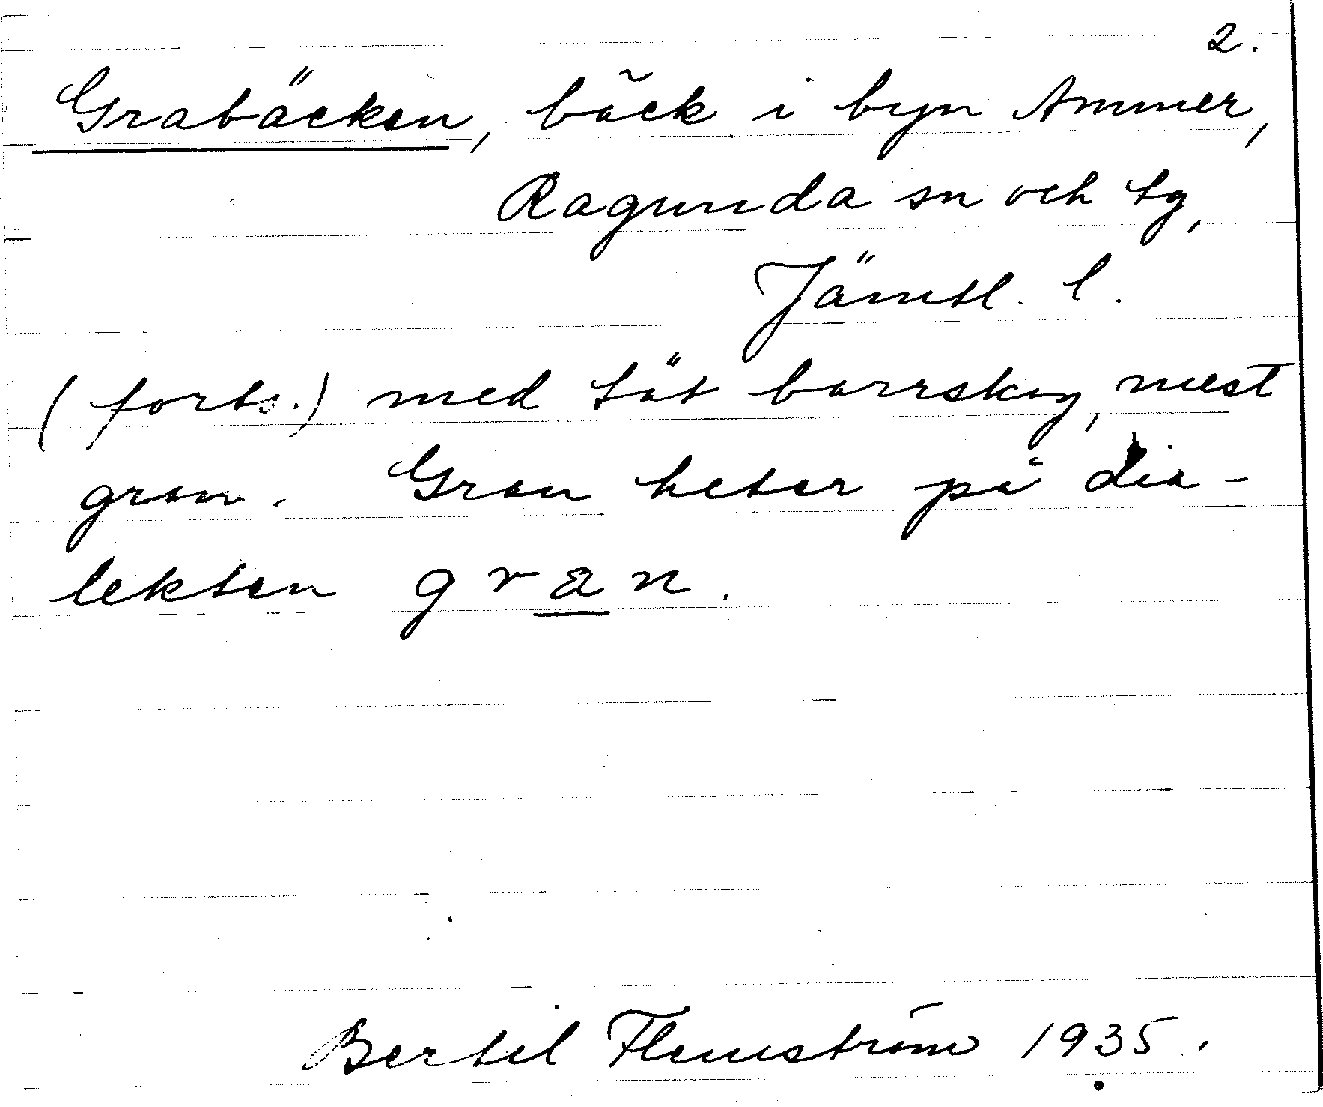 2.
Grabäcken, bäck i byn Ammer,
Ragunda sn och tg,
Jämtl. l.
(forts.) med tät barrskog, mest
gran. Gran heter på dia-
lekten gran.
Bertil Flemström 1935.